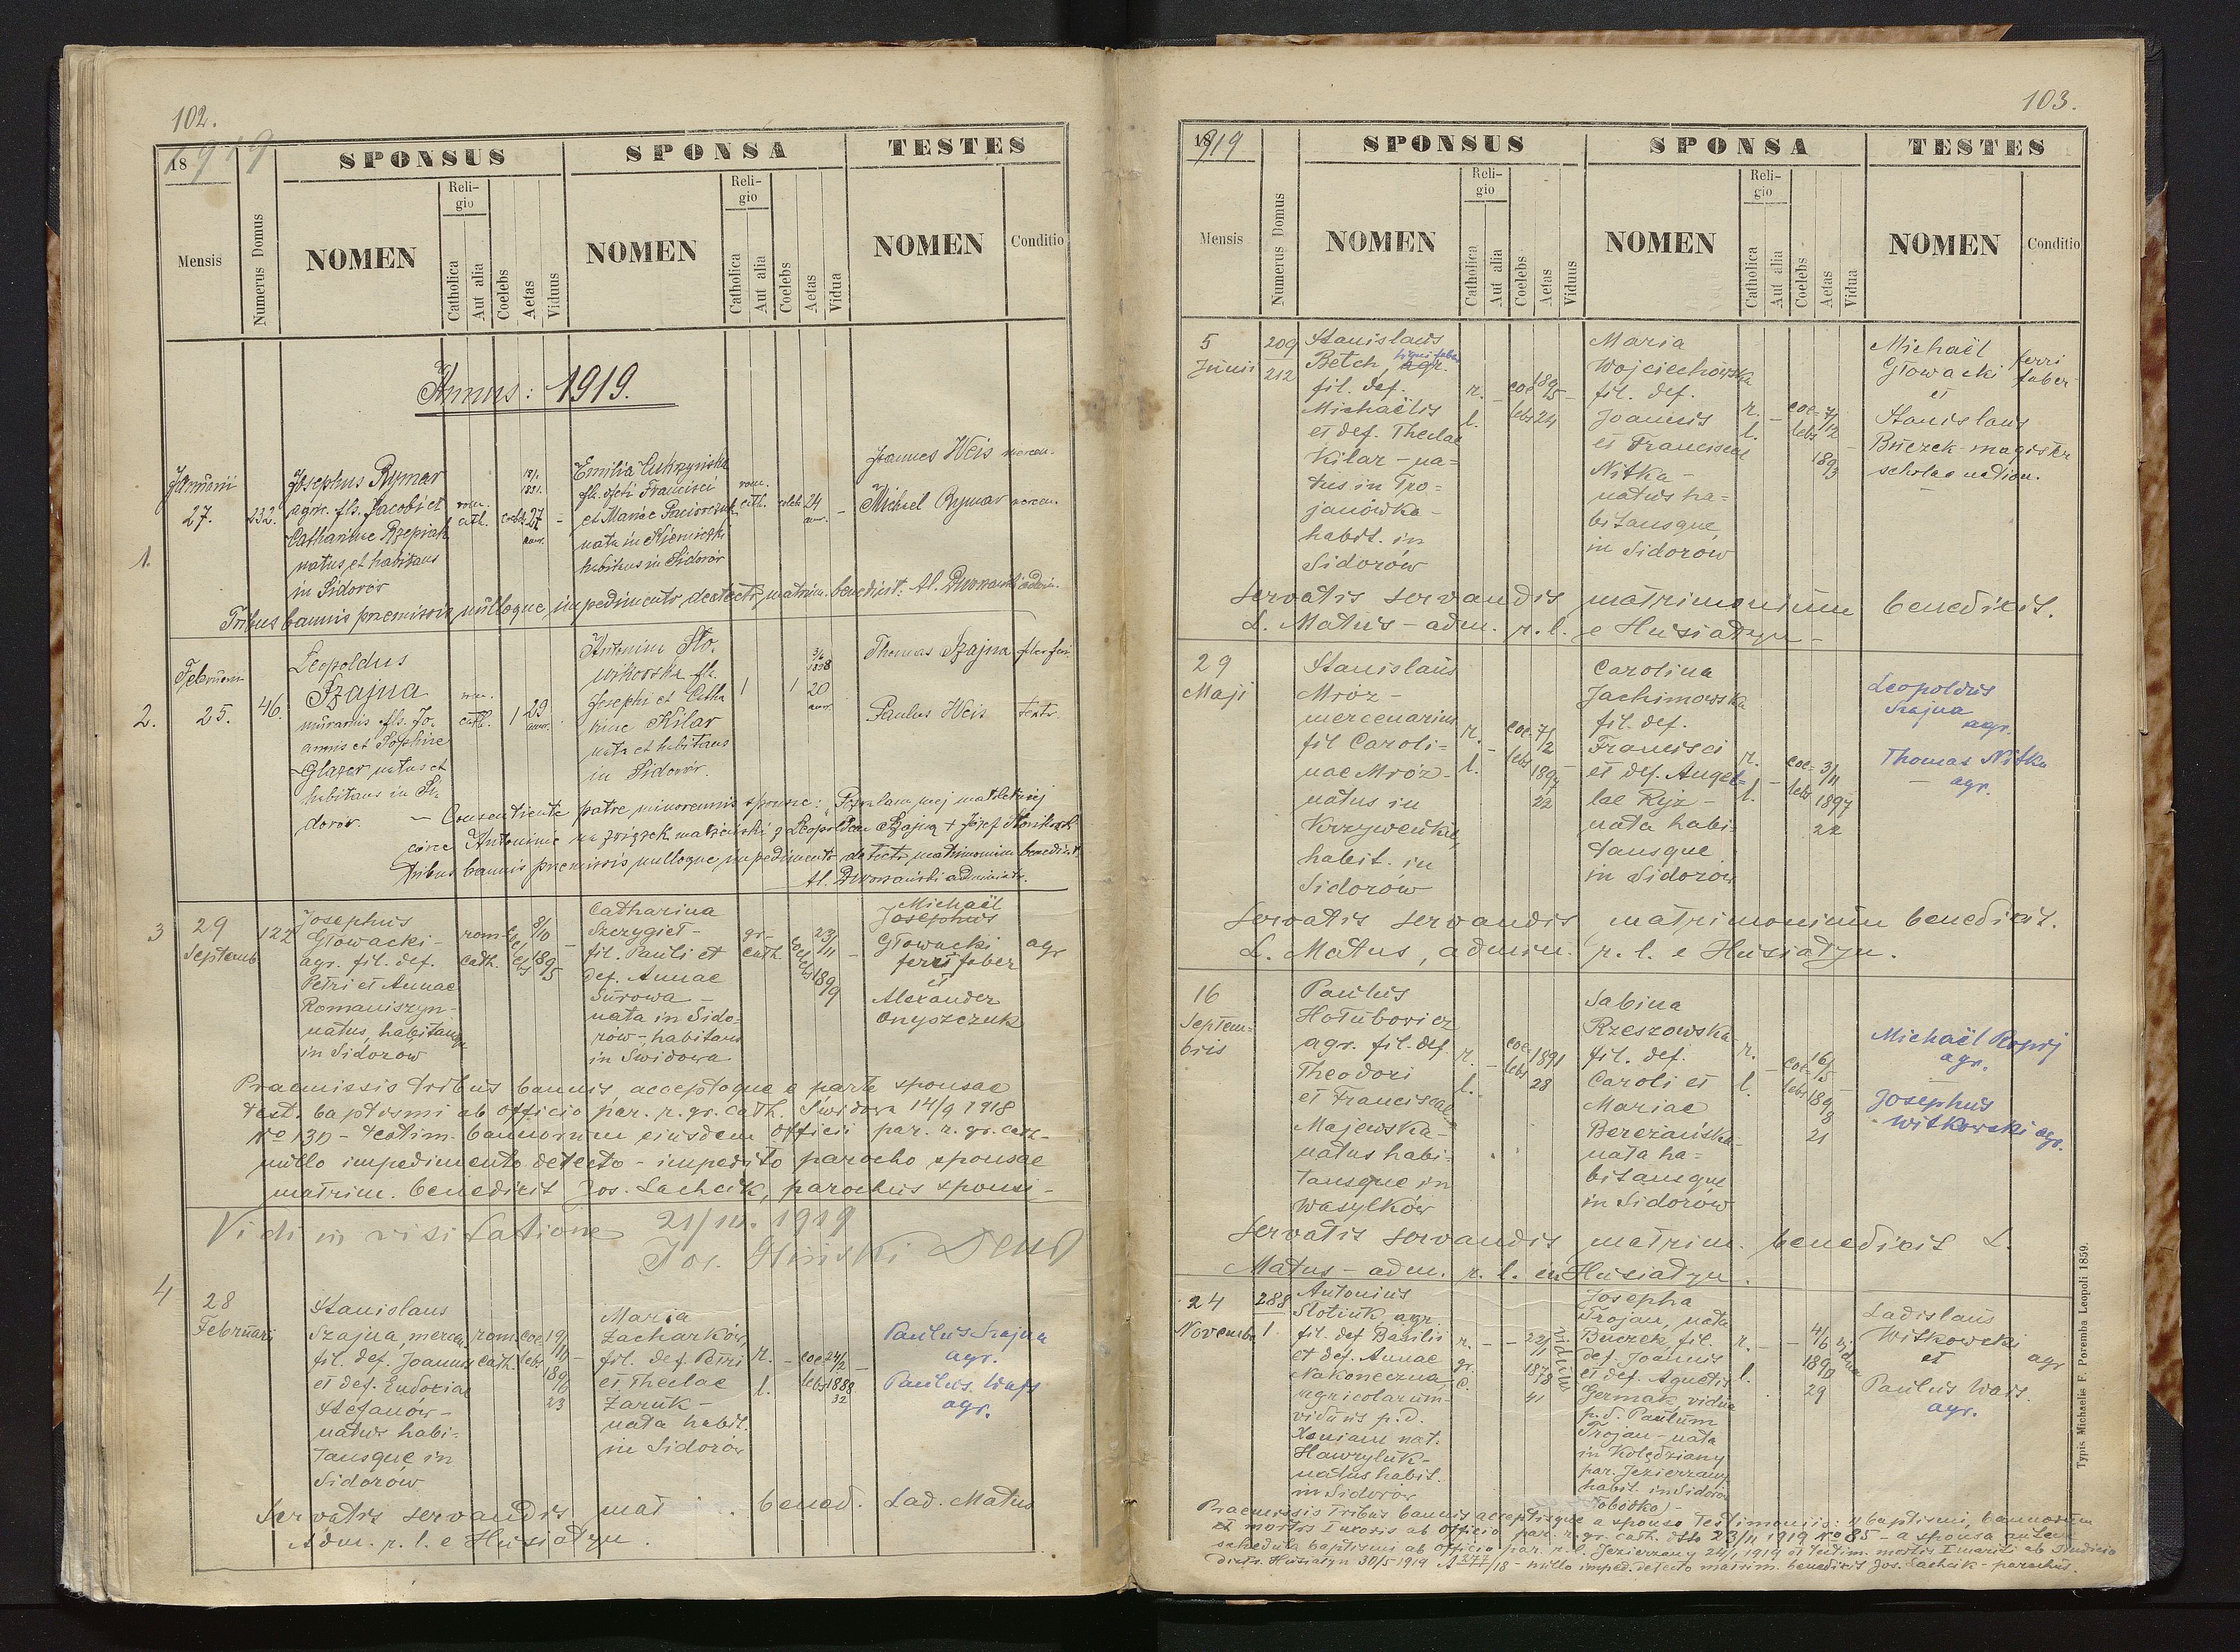 102.
1919
SPONSUS
SPONSA
TESTES
Mensis
Numerus Domus
NOMEN
Religio
Catholica
Aut alia
Coelebs
Aetas
Viduus
NOMEN
Religio
Catholica
Aut alia
Coelebs
Aetas
Vidua
NOMEN
Conditio
Annus: 1919.
1.
Januarii
27.
232.
Josephus Rymar
agr. fls. Jacobi et
Catharinae Rzepiak
natus et habitans
in Sidorów
rom.
cath.
coelebs
27
Emilia
Francisci
et Mariae
habitans in Sidorów
rom.
cath.
coeleb
24
Joannes Weis mercen.
Michael Rymar mercen.
Tribus bannis praemissis nulloque impedimento detecto, matrim. benedixit: Al. Dworzański admin.
2.
Februarii
25.
46.
Leopoldus
Szajna
murarius fls. Jo-
annis et Sophiae
Glazer natus et
habitans in Si-
dorów.
rom.
cath.
1
29
Antonina Sło-
wikowska fls.
Josephi et Catha
rinae Kilar
nata et habitans
in Sidorów.
1
1
3/6
1898
20
Thomas Szajna
Paulus Weis
Consentiente patre minorennis sponsae: Pozwalam mej małoletniej
córce Antoninie na związek małżeński z Leopoldem Szajną + Józef Słowikowski
Tribus bannis praemissis nulloque impedimento detecto, matrimonium benedixit
Al. Dworzański administr.
3
29
Septemb.
122
Josephus
Głowacki-
agr. fil. def.
Petri et Annae
Romaniszyn-
natus, habitansque
in Sidorow
rom-
cath.
8/10
1895
Catharina
Szczygieł-
fil. Pauli et
def. Annae
Surowa -
nata in Sido-
rów-, habitans
in Świdowa
gr-
cath.
23/11
1899
Michaël
Josephus
Głowacki
ferri faber
et
Alexander
Onyszczuk
agr
Praemissis tribus bannis, acceptoque e parte sponsae
test. baptismi ab officio par. r. gr. cath. Świdowa 14/9 1918
No 130 - testim. bannorum eiusdem officii par. r. gr. cath-
nullo impedimento detecto - impedito parocho sponsae
matrim. benedixit Jos. Lachcik, parochus sponsi-
Vidi in visitatione 21/10. 1919
4
28
Februari
Stanislaus
Szajna, mercen.
fil. def. Joannis
et def. Eudoxiae
Stefanów-
natus habi-
tansque in
Sidorów
rom.
cath.
coe
lebs
19/10
1896
23
Maria
Zacharków,
fil. def. Petri
et Theclae
Zaruk-
nata habit.
in Sidorów
r.
l.
coe-
lebs
24/2
1888
32
Paulus Szajna
agr.
Paulus Wajs
agr.
Servatis servandis mat bened. Lad. Matus
Adm. r. l. e Husiatyn.
103.
1919
SPONSUS
SPONSA
TESTES
Mensis
Numerus Domus
NOMEN
Religio
Catholica
Aut alia
Coelebs
Aetas
Viduus
NOMEN
Religio
Catholica
Aut alia
Coelebs
Aetas
Vidua
NOMEN
Conditio
5
Junii
209
212
Stanislaus
Betch, agr. ligni faber
fil. def.
Michaëlis
et def. Theclae
Kilar - na-
tus in Tro-
janówka -
habit. in
Sidorów
r.
l.
coe
lebs
1895
24
Maria
Wojciechowska
fil. def.
Joannis
et Franciscae
Nitka -
natus ha-
bitansque
in Sidorów
r.
l.
coe-
lebs
7/12
1893
Michaël
Głowacki
et
Stanislaus
Buczek - magister
scholae nation.
ferri
faber
Servatis servandis matrimonium benedixit.
L. Matus - adm. r. l. e Husiatyn -
29
Maji
Stanislaus
Mróz -
mercenarius
fil Caroli-
nae Mróz-
natus in
Krzyweńkie,
habit. in
Sidorów
r.
l.
coe-
lebs
7/2
1897
22
Carolina
Jachimowska
fil. def.
Francisci
et def. Angel-
lae Ryż -
nata habi-
tansque
in Sidorow
r.
l.
coe-
lebs
3/11
1897
22
Leopoldus
Szajna
agr.
Thomas Nitka
agr.
Servatis servandis matrimonium benedixit.
L. Matus, admin. r. l. e Husiatyn.
16
Septem-
bris
Paulus
Hołubowicz
agr. fil. def
Theodori
et Franciscae
Majewska -
natus habi-
tansque in
Wasylków
r.
l.
coe-
lebs
1891
28
Sabina
Rzeszowska
fil. def.
Caroli et
Mariae
Bereżańska-
nata ha-
bitansque
in Sidorów
r.
l.
coe-
lebs
16/5
1898
21
Michaël
agr.
Josephus
Witkowski agr.
Servatis servandis matrim. benedixit L.
Matus - adm. r. l. in Husiatyn.
24
Novembr
288
1.
Antonius
Slotiuk, agr.
fil. def Basilii
et def. Annae
Nakoneczna,
agricolarum-
viduus p. d.
Xeniam nat.
Hawryluk-
natus habit.
in Sidorów
r.
gr.
c.
22/1
1878
41
viduus
Josepha
Trojan, nata
Buczek, fil.
def. Joannis
et def. Agnetis
Germak, vidua
p. d. Paulum
Trojan - nata
in Kolędziany
par. Jezierzany
habit. in Sidorów
(Słobódka) -
r.
l.
4/6
1890
29
vidua
Ladislaus
Witkowski
et
Paulus Wais
agr.
agr
Praemissis tribus bannis acceptisque a sponso testimoniis: 1) baptismi, bannorum
et mortis I uxoris ab officio par. r. gr. cath. dtto 23/11 1919 No 85 - a sponsa autem
schedula baptismi ab officio par. r. l. Jezierzany 24/1 1919 et testim. mortis I mariti ab Iudicio
distr. Husiatyn 30/5 1919 A 277/18 - nullo imped. detecto matrim. benedixit Jos. Lachcik - parochus.
Typis Michaelis F. Poremba Leopoli 1859.